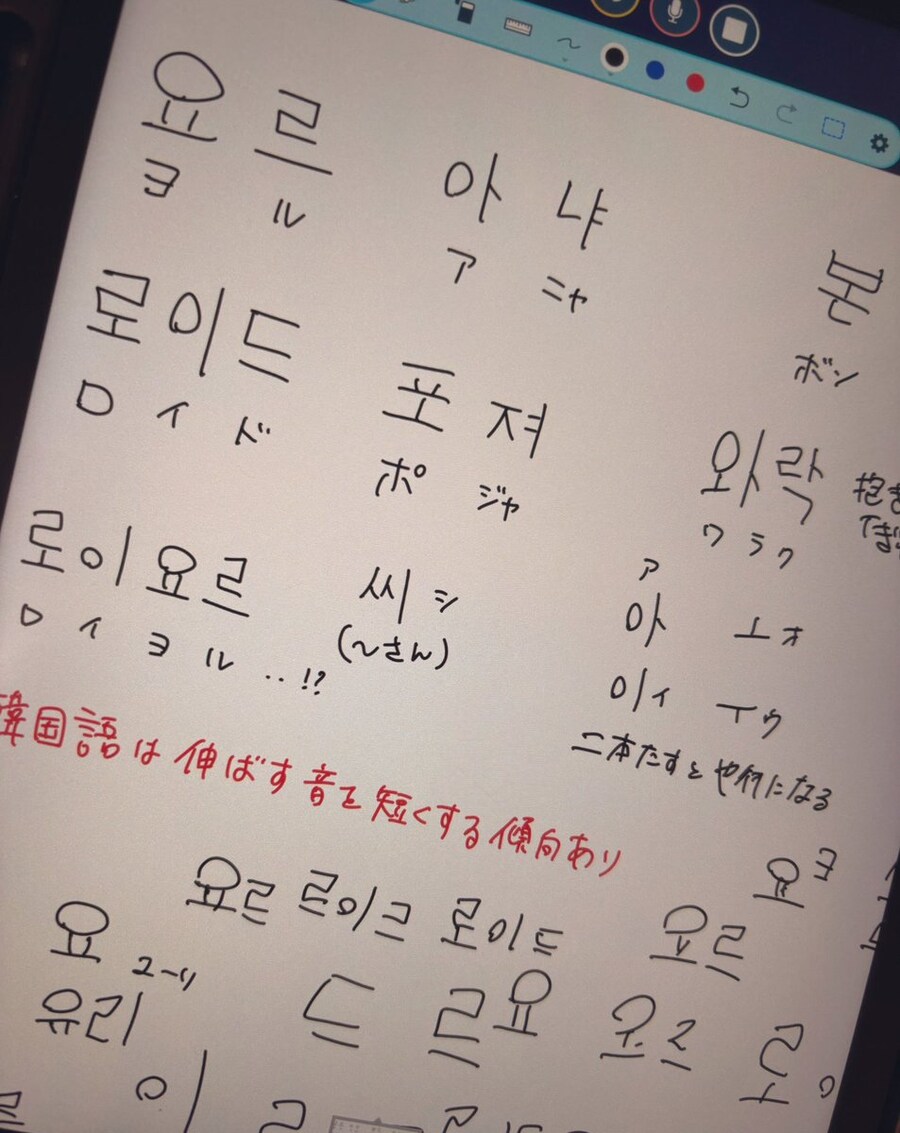 요 르
ヨ ル
아 냐
ア ニャ
본
ボン
로이드
ロ イ ド
포 져
ポ ジャ
와락
ワ ラ ク
抱き
로이요르
ロ イ ヨ ル ‥!?
씨 シ
(〜さん)
ア
아 ㅗ ォ
이 ィ ㅜ ゥ
二本たすとや行になる
韓国語は伸ばす音を短くする傾向あり
요 ヨ
요르 르이크 로이드
요르
요
ユーリ
유리
드 르 요
요르
이